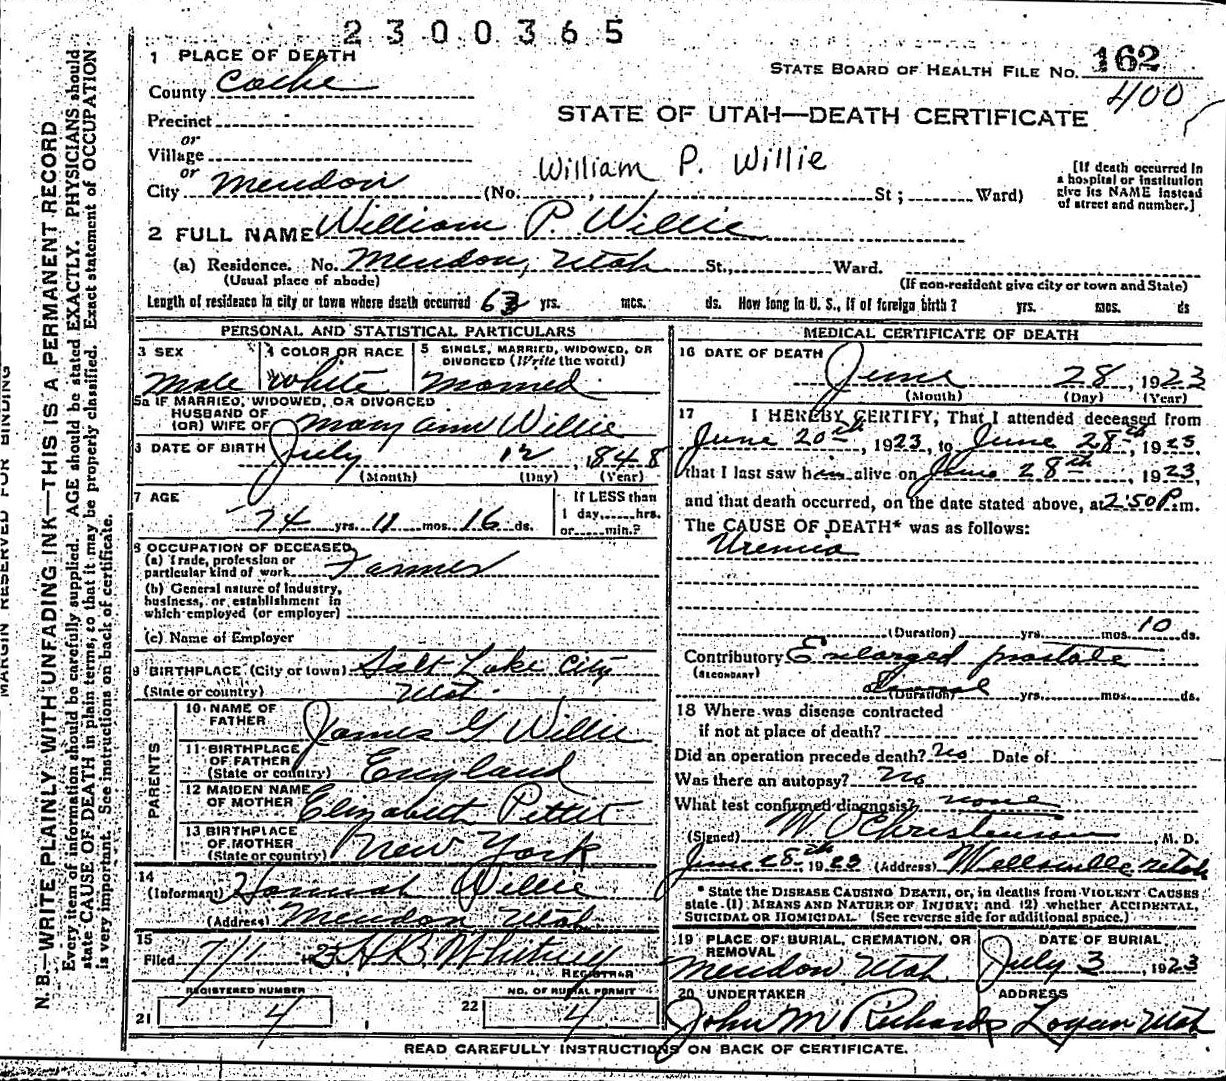 2300365
1 PLACE OF DEATH
STATE BOARD OF HEALTH FILE NO. 162
400
County Cache
STATE OF UTAH—DEATH CERTIFICATE
Precinct
or
Village
or
William P. Willie
City Mendon (No. St; Ward)
[If death occurred in
a hospital or institution
give its NAME instead
of street and number.]
2 FULL NAME William P. Willie
(a) Residence. No. Mendon, Utah St., Ward.
(Usual place of abode) (If non-resident give city or town and State)
Length of residence in city or town where death occurred 63 yrs. mos. ds. How long in U. S., if of foreign birth? yrs. mos. ds
PERSONAL AND STATISTICAL PARTICULARS
3 SEX Male
4 COLOR OR RACE White
5 SINGLE, MARRIED, WIDOWED, OR
DIVORCED (Write the word)
Married
5a IF MARRIED, WIDOWED, OR DIVORCED
HUSBAND OF
(OR) WIFE OF Mary Ann Willie
6 DATE OF BIRTH July 12, 1848
(Month) (Day) (Year)
7 AGE
74 yrs. 11 mos. 16 ds.
If LESS than
1 day, hrs.
or min.?
8 OCCUPATION OF DECEASED
(a) Trade, profession or
particular kind of work Farmer
(b) General nature of Industry,
business, or establishment in
which employed (or employer)
(c) Name of Employer
9 BIRTHPLACE (City or town) Salt Lake City
(State or country) Ut.
PARENTS
10 NAME OF
FATHER James G Willie
11 BIRTHPLACE
OF FATHER
(State or country) England
12 MAIDEN NAME
OF MOTHER Elizabeth Pettit
13 BIRTHPLACE
OF MOTHER
(State or country) New York
14
(Informant) Hannah Willie
(Address) Mendon Utah
15
Filed 7/1 1923 H.B. Whitney
REGISTRAR
REGISTERED NUMBER
21 4
NO. OF BURIAL PERMIT
22 4
MEDICAL CERTIFICATE OF DEATH
16 DATE OF DEATH
June 28, 1923
(Month) (Day) (Year)
17 I HEREBY CERTIFY, That I attended deceased from
June 20th, 1923, to June 28th, 1923
that I last saw him alive on June 28th, 1923,
and that death occurred, on the date stated above, at 2:50 P.m.
The CAUSE OF DEATH* was as follows:
Uremia
(Duration) yrs. mos. 10 ds.
Contributory Enlarged prostate
(SECONDARY)
(Duration) yrs. mos. ds.
18 Where was disease contracted
if not at place of death?
Did an operation precede death? No Date of
Was there an autopsy? No
What test confirmed diagnosis? none
(Signed) W O Christensen, M. D.
June 28th, 1923 (Address) Wellsville Utah
* State the DISEASE CAUSING DEATH, or, in deaths from VIOLENT CAUSES
state (1) MEANS AND NATURE OF INJURY; and (2) whether ACCIDENTAL,
SUICIDAL OR HOMICIDAL. (See reverse side for additional space.)
19 PLACE OF BURIAL, CREMATION, OR
REMOVAL
Mendon Utah
DATE OF BURIAL
July 3, 1923
20 UNDERTAKER
John M Richards
ADDRESS
Logan Utah
READ CAREFULLY INSTRUCTIONS ON BACK OF CERTIFICATE.
MARGIN RESERVED FOR BINDING
N. B.—WRITE PLAINLY WITH UNFADING INK—THIS IS A PERMANENT RECORD
Every item of information should be carefully supplied. AGE should be stated EXACTLY. PHYSICIANS should
state CAUSE OF DEATH in plain terms, so that it may be properly classified. Exact statement of OCCUPATION
is very important. See instructions on back of certificate.